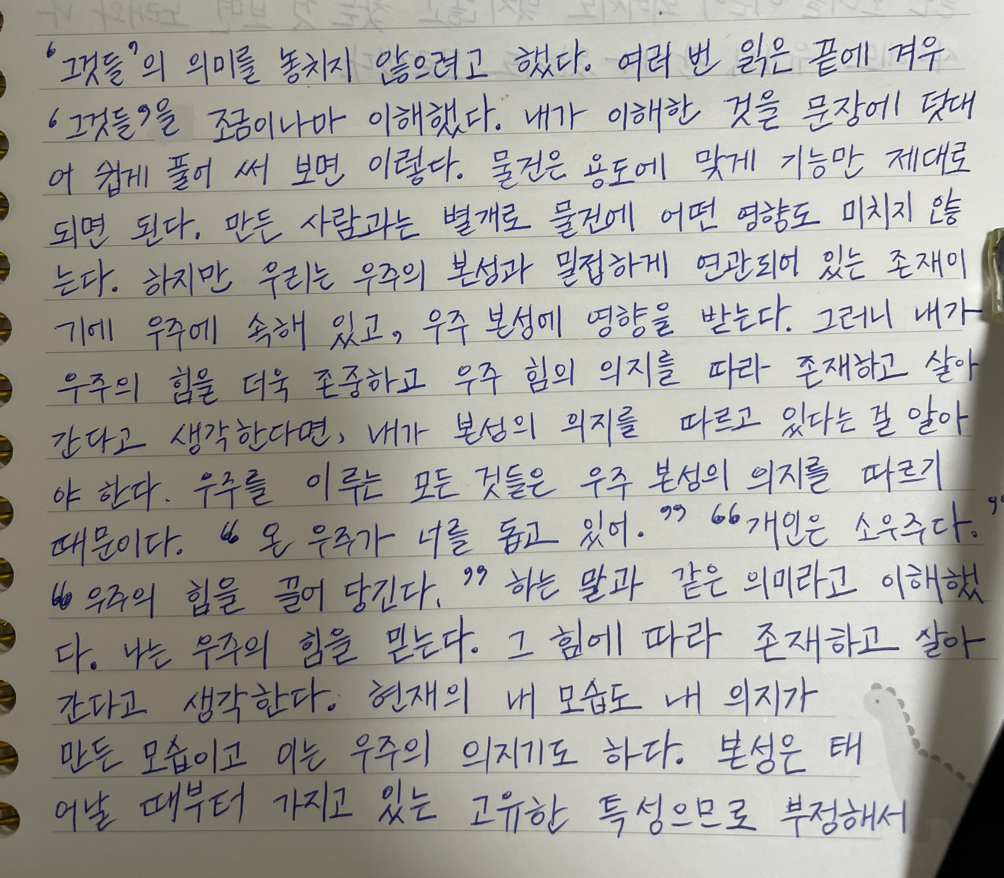 ‘그것들’의 의미를 놓치지 않으려고 했다. 여러 번 읽은 끝에 겨우
‘그것들’을 조금이나마 이해했다. 내가 이해한 것을 문장에 덧대
어 쉽게 풀어 써 보면 이렇다. 물건은 용도에 맞게 기능만 제대로
되면 된다. 만든 사람과는 별개로 물건에 어떤 영향도 미치지 않
는다. 하지만 우리는 우주의 본성과 밀접하게 연관되어 있는 존재이
기에 우주에 속해 있고, 우주 본성에 영향을 받는다. 그러니 내가
우주의 힘을 더욱 존중하고 우주 힘의 의지를 따라 존재하고 살아
간다고 생각한다면, 내가 본성의 의지를 따르고 있다는 걸 알아
야 한다. 우주를 이루는 모든 것들은 우주 본성의 의지를 따르기
때문이다. “온 우주가 너를 돕고 있어.” “개인은 소우주다.”
“우주의 힘을 끌어 당긴다.” 하는 말과 같은 의미라고 이해했
다. 나는 우주의 힘을 믿는다. 그 힘에 따라 존재하고 살아
간다고 생각한다. 현재의 내 모습도 내 의지가
만든 모습이고 이는 우주의 의지기도 하다. 본성은 태
어날 때부터 가지고 있는 고유한 특성으므로 부정해서